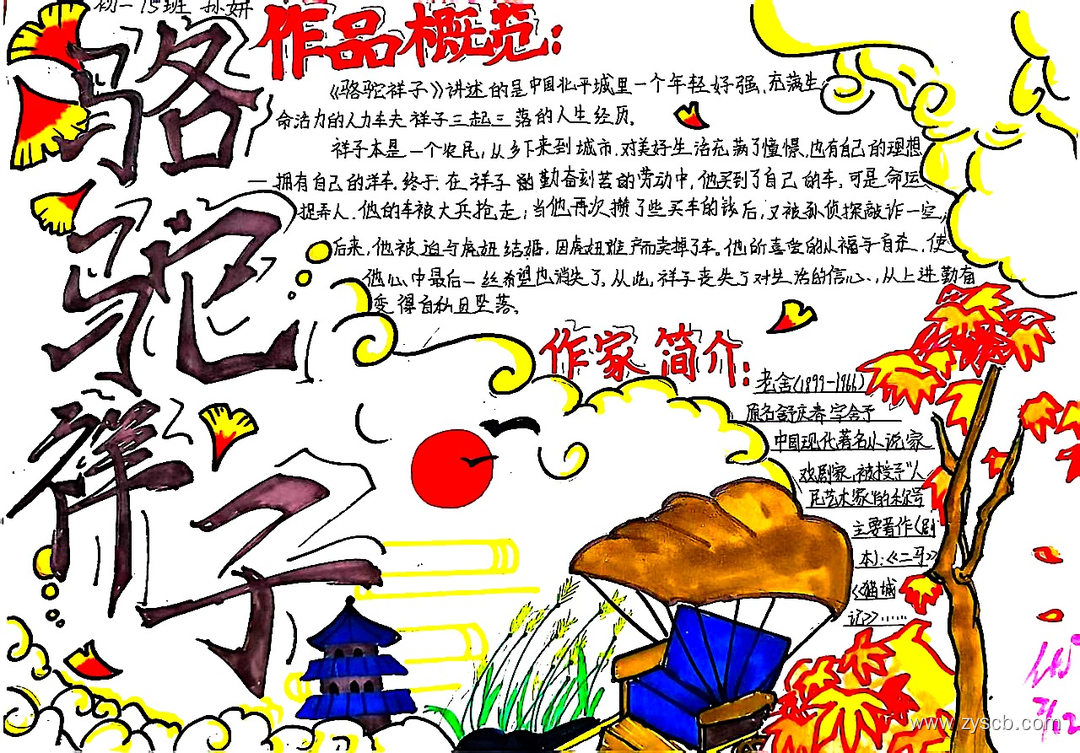 初一15班 孙妍
骆驼祥子
作品概览:
《骆驼祥子》讲述的是中国北平城里一个年轻好强、充满生
命活力的人力车夫祥子三起三落的人生经历。
祥子本是一个农民,从乡下来到城市,对美好生活充满了憧憬,也有自己的理想
—拥有自己的洋车,终于,在祥子的勤奋刻苦的劳动中,他买到了自己的车,可是命运
捉弄人,他的车被大兵抢走;当他再次攒了些买车的钱后,又被孙侦探敲诈一空,
后来,他被迫与虎妞结婚,因虎妞难产而卖掉了车。他所喜爱的小福子自杀,使
他心中最后一丝希望也消失了,从此,祥子丧失了对生活的信心,从上进勤奋
变得自私日坠落。
作家简介:
老舍(1899-1966)
原名舒庆春字舍予
中国现代著名小说家
戏剧家,被授予"人
民艺术家"的称号
主要著作(剧
本):《二马》
《猫城
记》……
www.zyscb.com